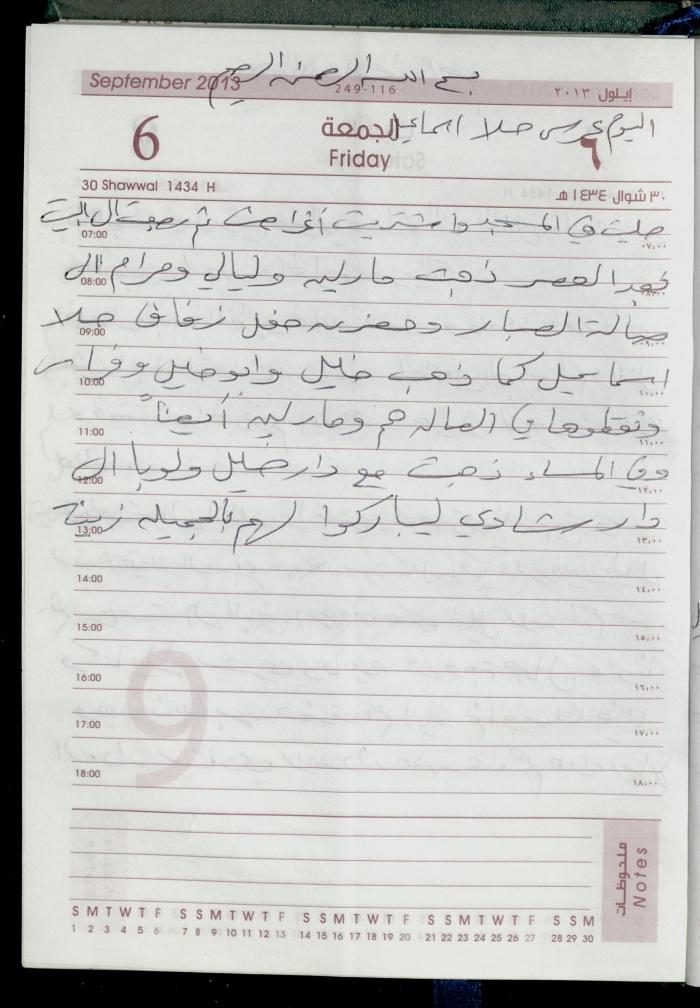 بسم الله الرحمن الرحيم
September 2013 249-116 إيلول ٢٠١٣
اليوم عرس حلا اسماعيل
6 الجمعة ٦
Friday
30 Shawwal 1434 H ٣٠ شوال ١٤٣٤ هـ
صليت في المسجد واشتريت أغراض ثم رجعت الى البيت
07:00 ٠٧,٠٠
بعد العصر ذهبت مارليه وليالي ومرام الى
08:00 ٠٨,٠٠
صالة الصبار وحضرن حفل زفاف حلا
09:00 ٠٩,٠٠
اسماعيل كما ذهب خليل وابو خليل
10:00 ١٠,٠٠
ونقطوها في الصاله هم ومارليه أيضاً
11:00 ١١,٠٠
وفي المساء ذهبت مع دار خليل ولوبا الى
12:00 ١٢,٠٠
دار شادي ليباركوا لهم بالجميله زينة
13:00 ١٣,٠٠
14:00 ١٤,٠٠
15:00 ١٥,٠٠
16:00 ١٦,٠٠
17:00 ١٧,٠٠
18:00 ١٨,٠٠
9
ملحوظات
Notes
S M T W T F S S M T W T F S S M T W T F S S M T W T F S S M
1 2 3 4 5 6 7 8 9 10 11 12 13 14 15 16 17 18 19 20 21 22 23 24 25 26 27 28 29 30